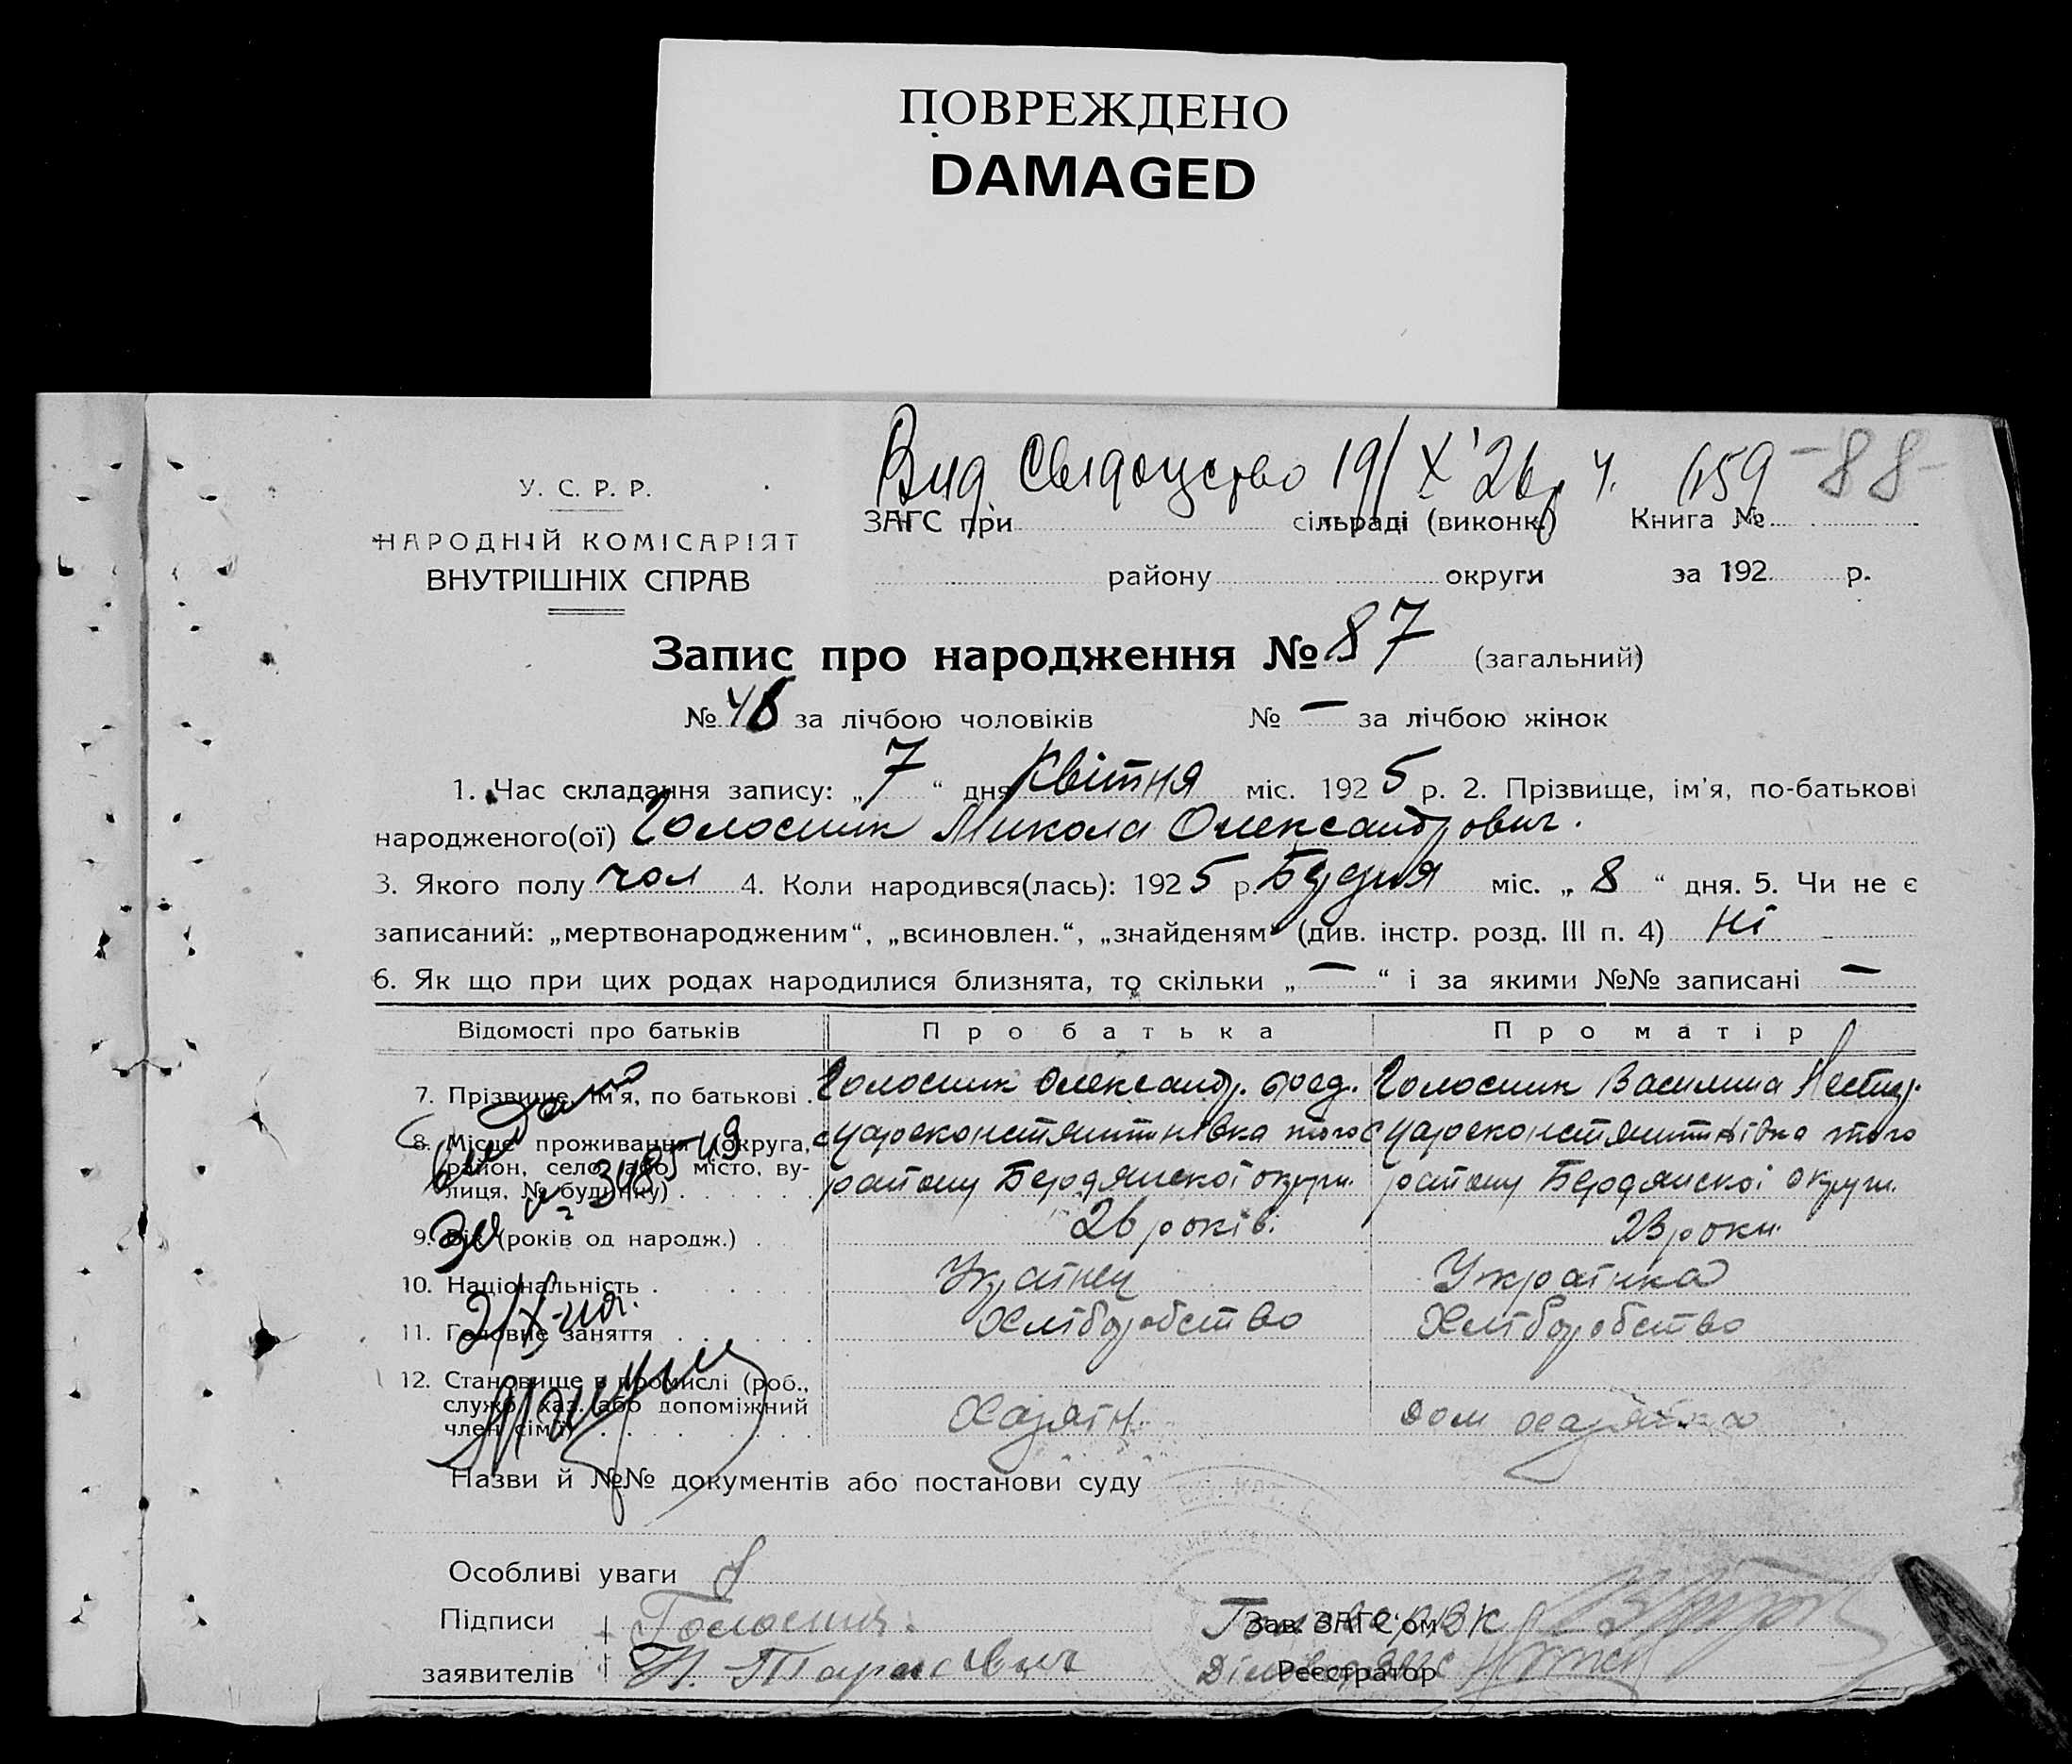 ПОВРЕЖДЕНО
DAMAGED
Вид. Свідоцтво 19/X 26р ч. 659 -88-
У. С. Р. Р.
НАРОДНІЙ КОМІСАРІЯТ
ВНУТРІШНІХ СПРАВ
ЗАГС при сільраді (виконк.) Книга №
району округи за 192 р.
Запис про народження № 87 (загальний)
№ 48 за лічбою чоловіків № — за лічбою жінок
1. Час складання запису: „7“ дня Квітня міс. 1925 р. 2. Прізвище, ім’я, по-батькові
народженого(ої) Голосник Микола Олександрович.
3. Якого полу чол 4. Коли народився(лась): 1925 р. міс. „8“ дня. 5. Чи не є
записаний: „мертвонародженим“, „всиновлен.“, „знайденям“ (див. інстр. розд. III п. 4) ні
6. Як що при цих родах народилися близнята, то скільки „—“ і за якими №№ записані —
Відомості про батьків Про батька Про матір
7. Прізвище, ім’я, по батькові . Голосник Олександр. Голосник Василина
8. Місце проживання (округа, с Цареконстянтинівка того с Цареконстянтинівка того
район, село або місто, ву-
лиця, № будинку) . району Бердянскої округи. району Бердянскої округи.
9. Вік (років од народж.) . 26 років. 23 роки.
10. Національність . Українец Українка
11. Головне заняття . Хліборобство Хліборобство
12. Становище в промислі (роб.,
служб., хаз. або допоміжний Хазяїн. дом хазяйка
член сім’ї)
Назви й №№ документів або постанови суду
Особливі уваги
Підписи Голосник. Зав. ЗАГС’ом
заявителів Н. Тарасевич Реєстратор